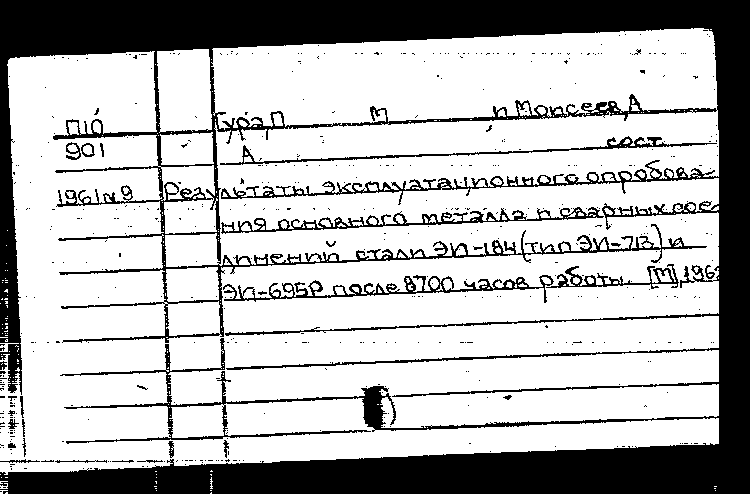 П10 Гура, П М и Моисеев, А
901 А сост.
1961 N 9 Результаты эксплуатационного опробова-
ния основного металла и сварных сое
динений стали ЭИ-184 (тип ЭИ-713) и
ЭИ-695Р после 8700 часов работы. [М], 196